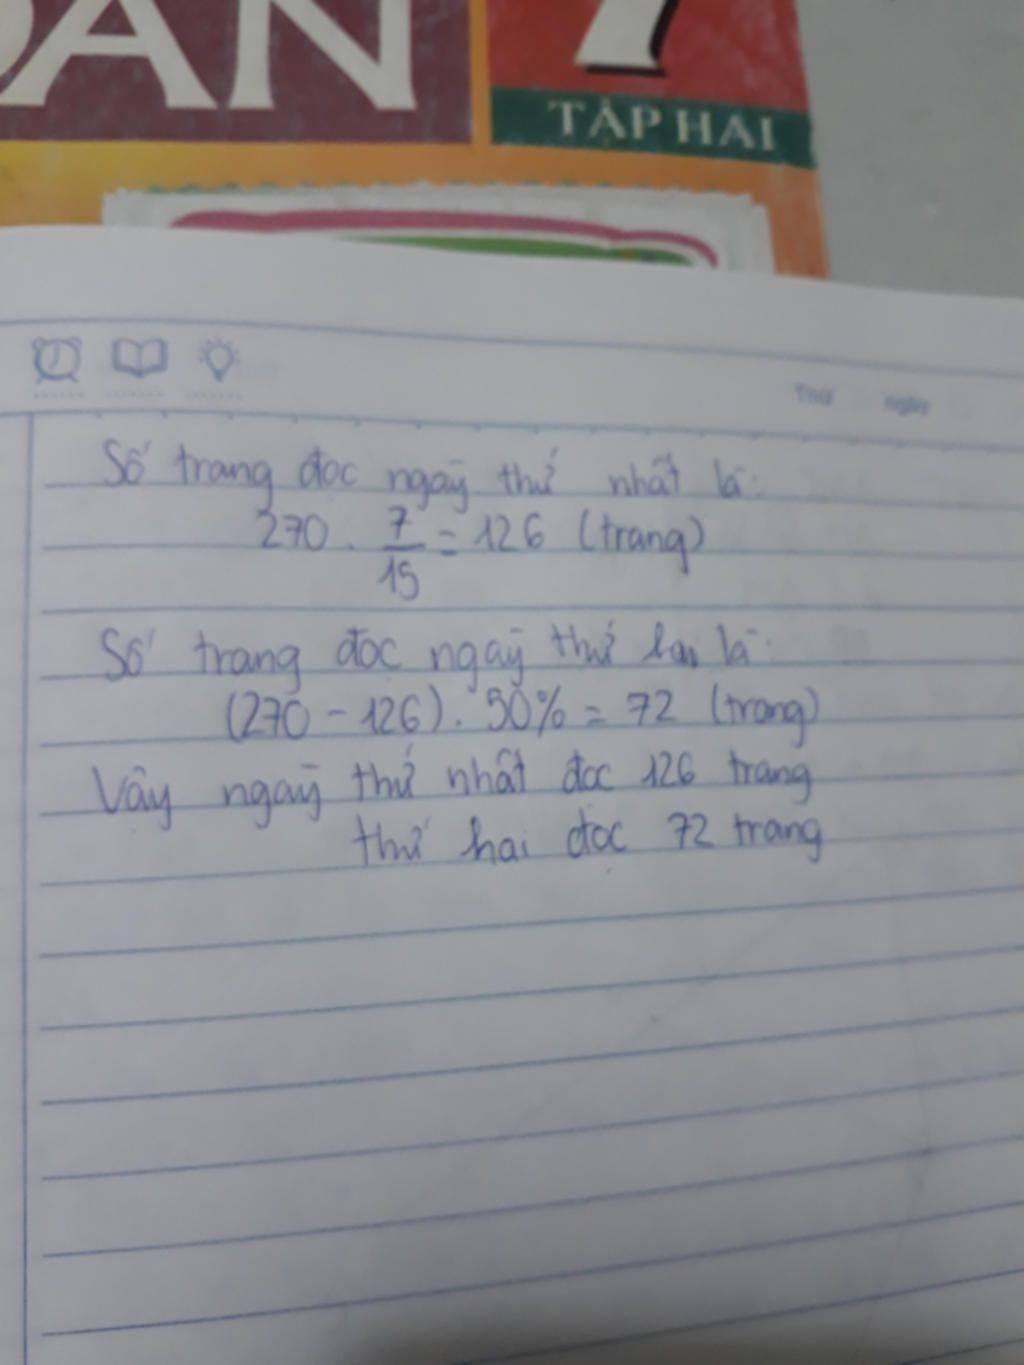 OÁN 7
TẬP HAI
Thứ ngày
Số trang đọc ngày thứ nhất là:
270 . 7/15 = 126 (trang)
Số trang đọc ngày thứ hai là:
(270 - 126) . 50% = 72 (trang)
Vậy ngày thứ nhất đọc 126 trang
thứ hai đọc 72 trang